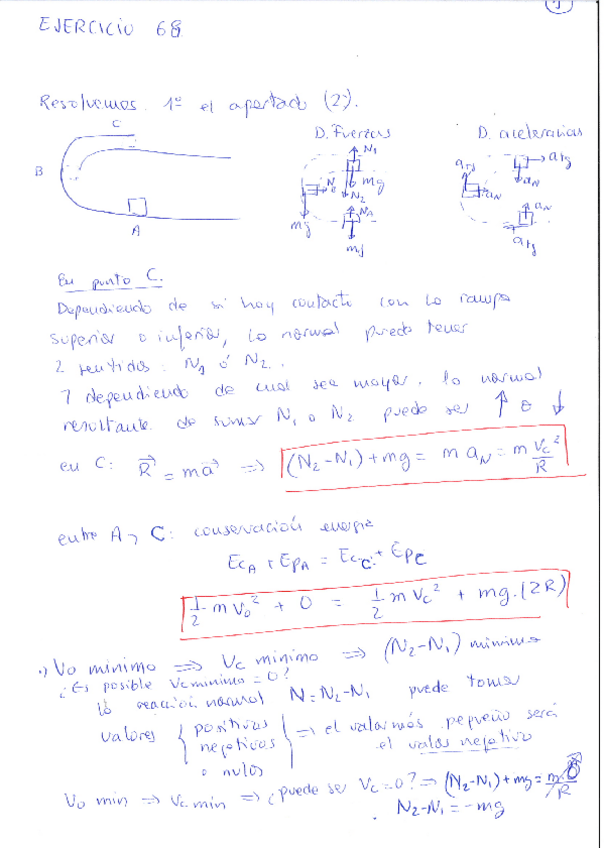 1
EJERCICIO 68
Resolvemos 1º el apartado (2).
C
D. Fuerzas
D. aceleraciones
B
A
N1
mg
N2
N
mg
NA
mg
atg
aN
atg
aN
aN
atg
En punto C.
Dependiendo de si hay contacto con la rampa
superior o inferior, la normal puede tener
2 sentidos: N1 ó N2.
Y dependiendo de cual sea mayor, la normal
resultante de sumar N1 o N2 puede ser ↑ o ↓
en C: R = ma ⟹ (N2-N1)+mg = m aN = m vc²/R
entre A y C: conservación energia
EcA + EpA = EcC + EpC
1/2 m v0² + 0 = 1/2 m vc² + mg.(2R)
•) Vo minimo ⟹ Vc minimo ⟹ (N2-N1) minima
¿Es posible Vc minimo = 0?
la reaccion normal N = N2-N1 puede tomar
valores { positivos negativos o nulos } ⟹ el valor más pequeño será el valor negativo
Vo min ⟹ vc min ⟹ ¿puede ser Vc = 0? ⟹ (N2-N1)+mg = m.0/R
N2-N1 = -mg